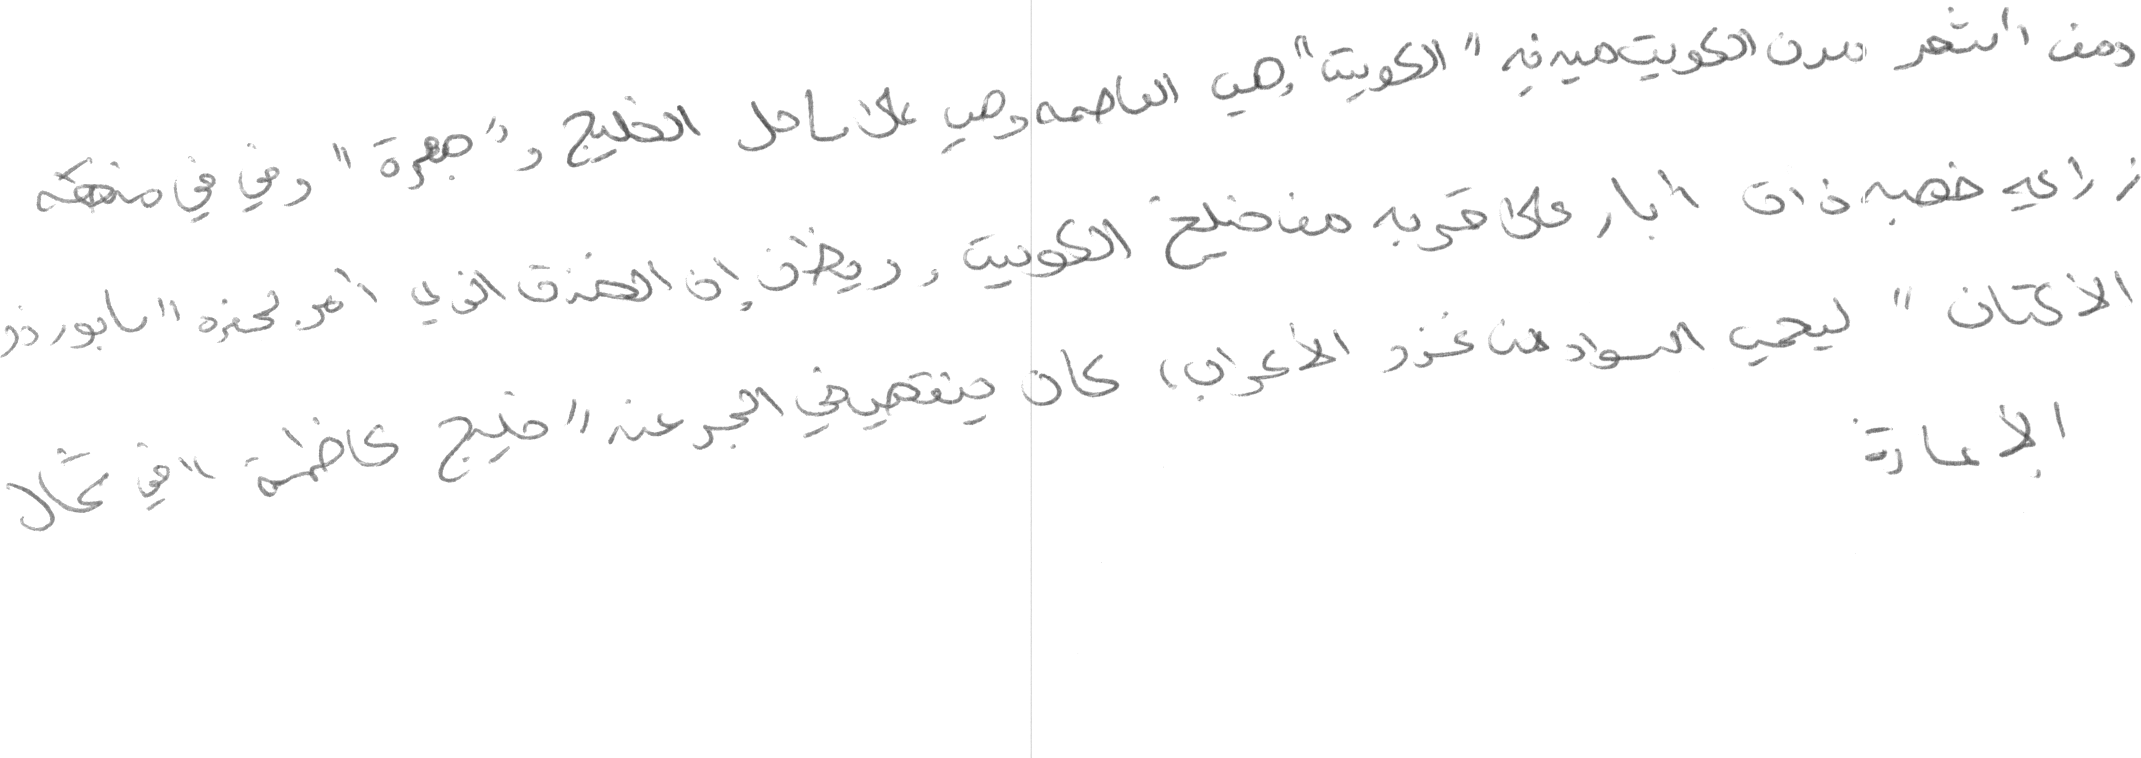 ومن أشهر مدن الكويت مدينه "الكويت" وهي العاصمه وهي على ساحل الخليج و"جهرة" وفي في منطقه
زراعيه خصبه ذات أبار على قربه من خليج الكويت، ويظن إن الخندق الذي أمر بحفره "سابور ذو
الأكتاف" ليحمي السواد من غزو الأعراب، كان ينتهي في البحر عند "خليج كاظمة" في شمال
الإمارة